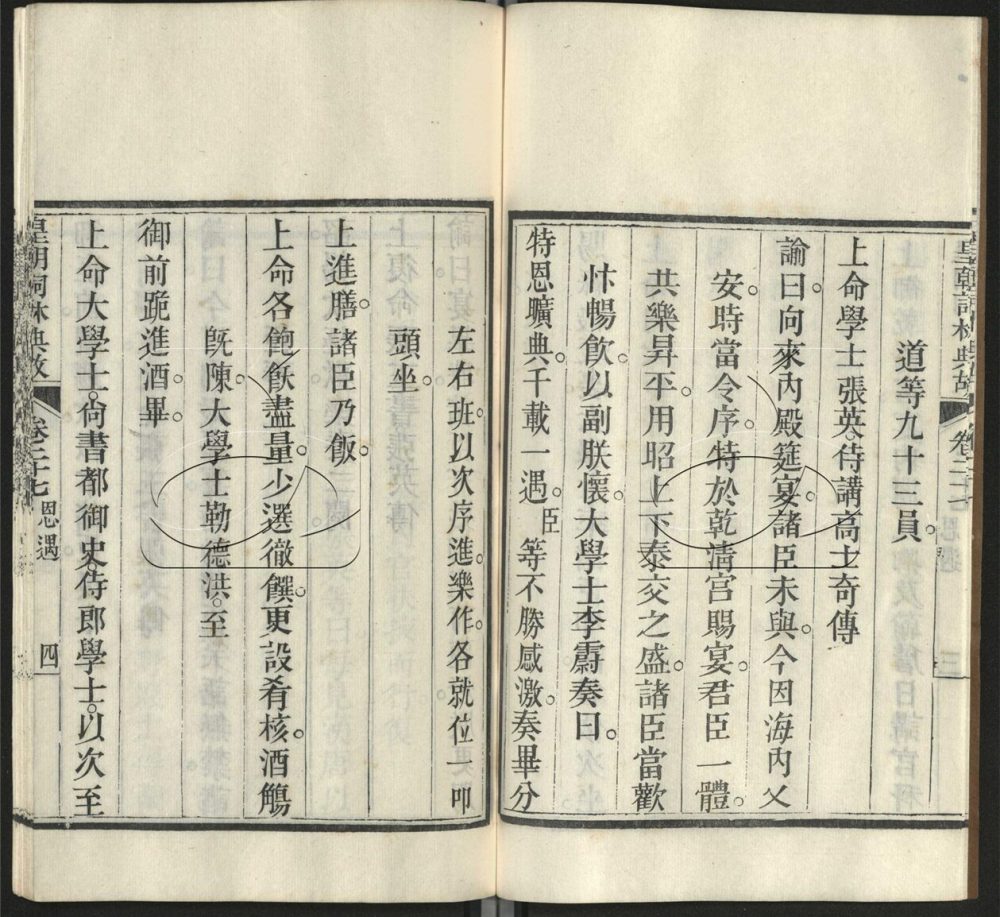 皇朝詞林典故 卷二十七 恩遇 三
道等九十三員。
上命學士張英、侍講高士奇傳
諭曰。向來內殿筵宴。諸臣未與。今因海內乂
安。時當令序。特於乾清宮賜宴。君臣一體。
共樂昇平。用昭上下泰交之盛。諸臣當歡
忭暢飲。以副朕懷。大學士李霨奏曰。
特恩曠典。千載一遇。臣等不勝感激。奏畢。分
左右班。以次序進。樂作。各就位一叩
頭坐。
上進膳。諸臣乃飯。
上命各飽飫盡量。少選徹饌。更設肴核。酒觴
旣陳。大學士勒德洪。至
御前跪進酒。畢。
上命大學士。尙書都御史。侍郎學士。以次至
皇朝詞林典故 卷二十七 恩遇 四